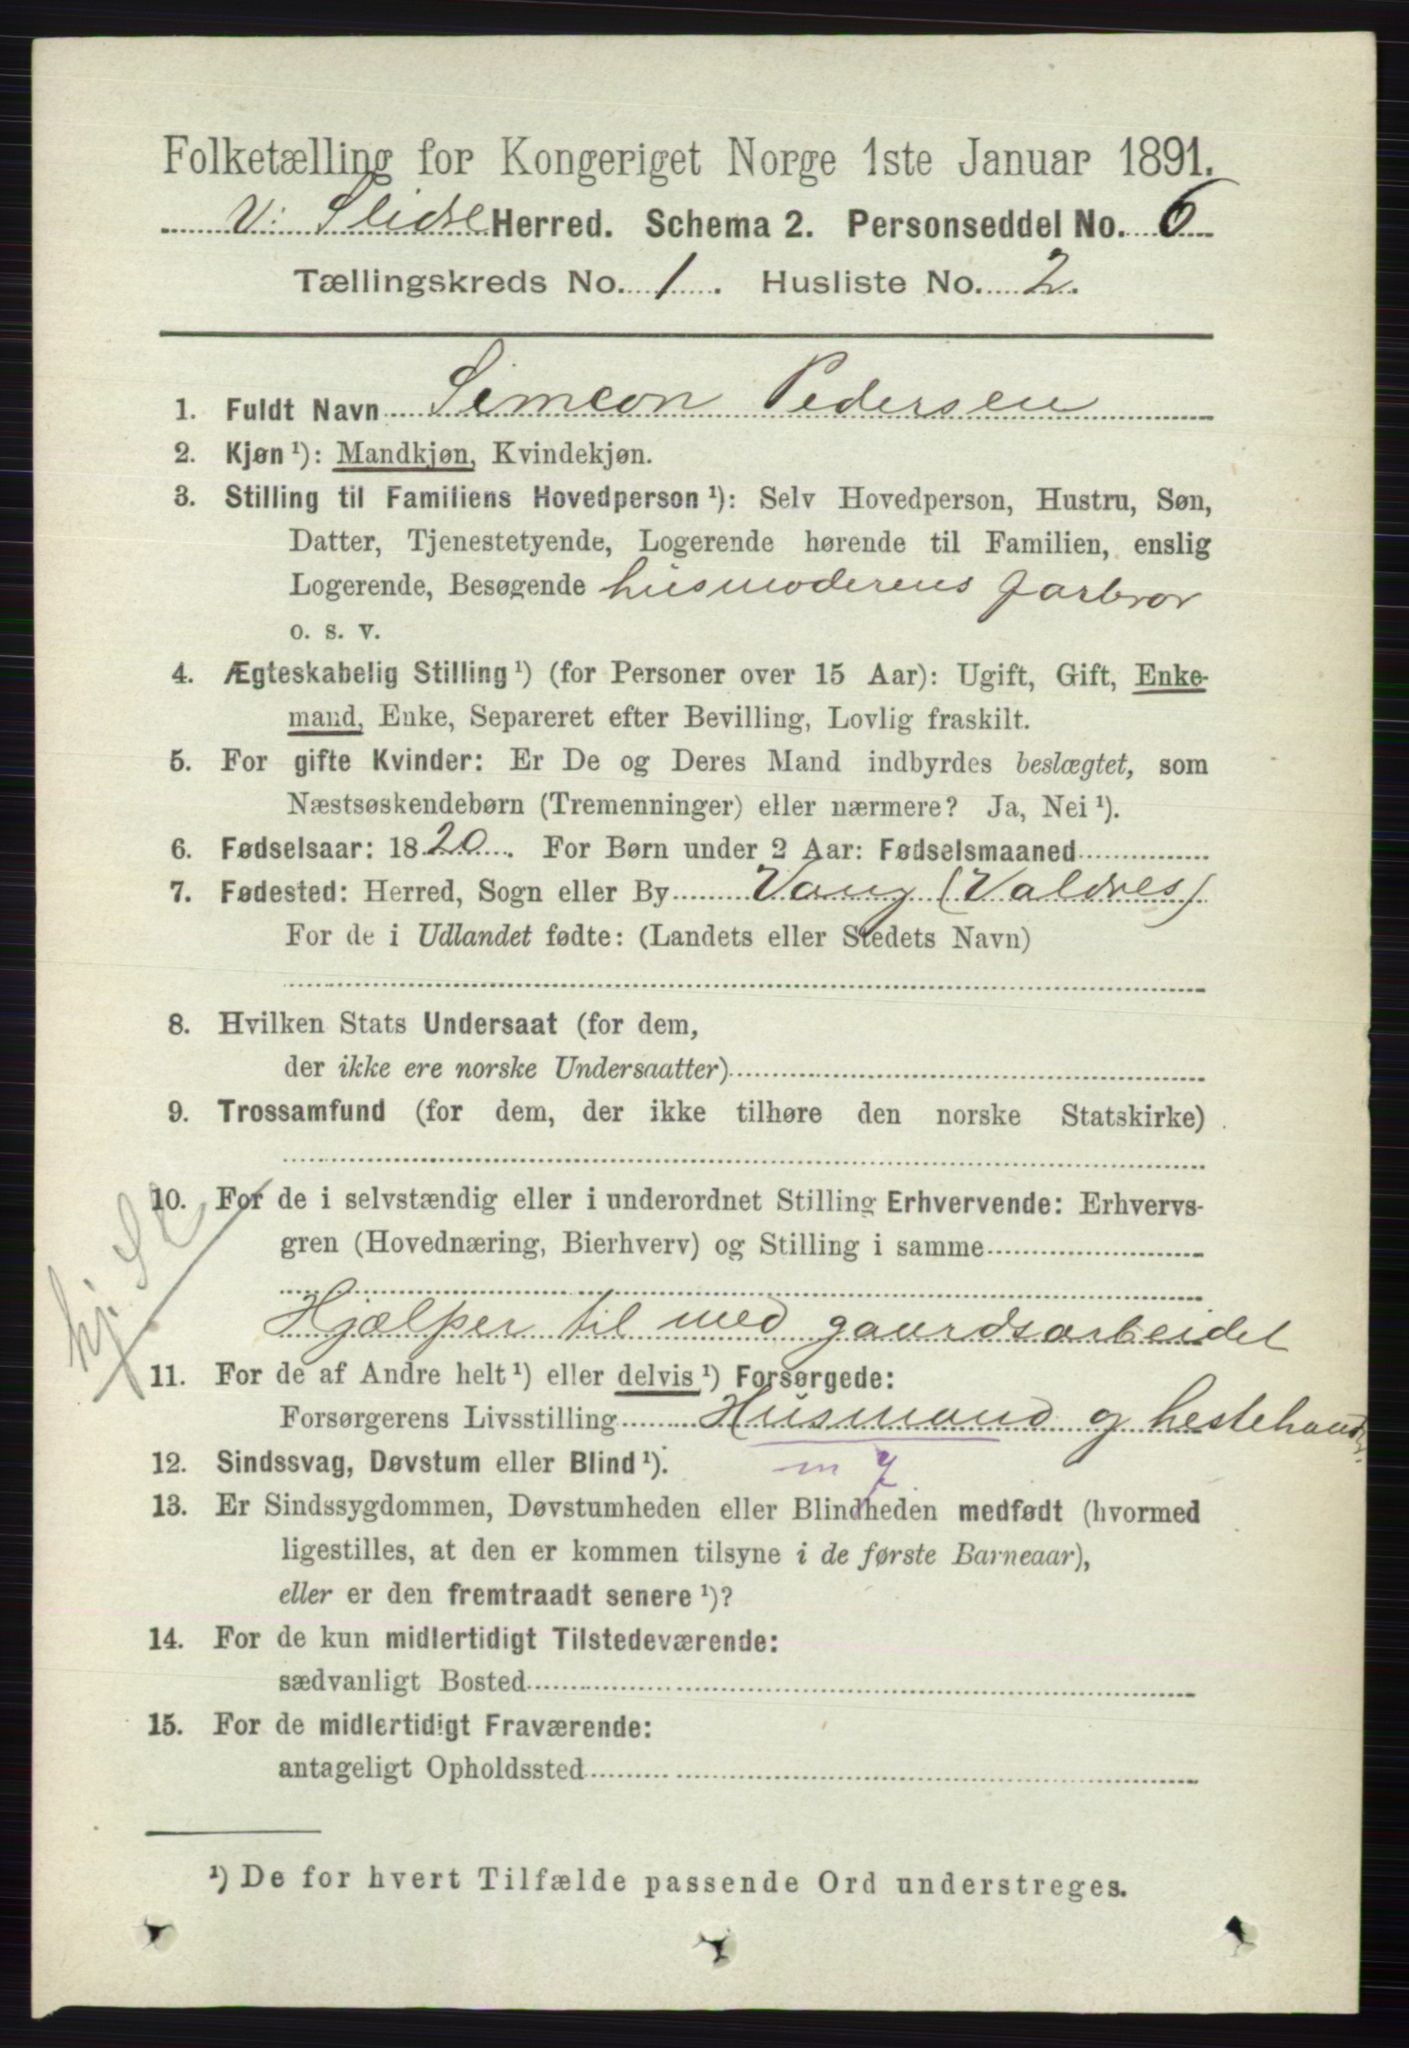 Folketælling for Kongeriget Norge 1ste Januar 1891.
V. Slidre Herred. Schema 2. Personseddel No. 6
Tællingskreds No. 1. Husliste No. 2.
1. Fuldt Navn Simeon Pedersen
2. Kjøn ¹): Mandkjøn, Kvindekjøn.
3. Stilling til Familiens Hovedperson ¹): Selv Hovedperson, Hustru, Søn,
Datter, Tjenestetyende, Logerende hørende til Familien, enslig
Logerende, Besøgende husmoderens farbror
o. s. v.
4. Ægteskabelig Stilling ¹) (for Personer over 15 Aar): Ugift, Gift, Enke-
mand, Enke, Separeret efter Bevilling, Lovlig fraskilt.
5. For gifte Kvinder: Er De og Deres Mand indbyrdes beslægtet, som
Næstsøskendebørn (Tremenninger) eller nærmere? Ja, Nei ¹).
6. Fødselsaar: 1820. For Børn under 2 Aar: Fødselsmaaned
7. Fødested: Herred, Sogn eller By Vang (Valdres)
For de i Udlandet fødte: (Landets eller Stedets Navn)
8. Hvilken Stats Undersaat (for dem,
der ikke ere norske Undersaatter)
9. Trossamfund (for dem, der ikke tilhøre den norske Statskirke)
10. For de i selvstændig eller i underordnet Stilling Erhvervende: Erhvervs-
gren (Hovednæring, Bierhverv) og Stilling i samme
Hjælper til med gaardsarbeidet
11. For de af Andre helt ¹) eller delvis ¹) Forsørgede:
Forsørgerens Livsstilling Husmand og hestehandl.
12. Sindssvag, Døvstum eller Blind ¹).
m 7
13. Er Sindssygdommen, Døvstumheden eller Blindheden medfødt (hvormed
ligestilles, at den er kommen tilsyne i de første Barneaar),
eller er den fremtraadt senere ¹)?
14. For de kun midlertidigt Tilstedeværende:
sædvanligt Bosted
15. For de midlertidigt Fraværende:
antageligt Opholdssted
¹) De for hvert Tilfælde passende Ord understreges.